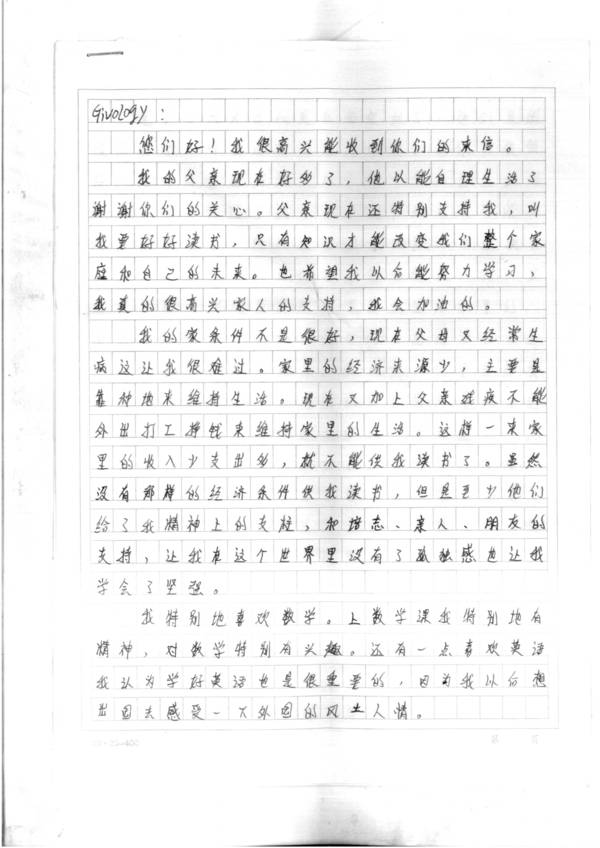 Givology:
您们好！我很高兴能收到你们的来信。
我的父亲现在好多了，他以能自理生活了
谢谢你们的关心。父亲现在还特别支持我，叫
我要好好读书，只有知识才能改变我们整个家
庭和自己的未来。也希望我以后能努力学习，
我真的很高兴家人的支持，我会加油的。
我的家条件不是很好，现在父母又经常生
病这让我很难过。家里的经济来源少，主要是
靠种地来维持生活。现在又加上父亲残疾不能
外出打工挣钱来维持家里的生活。这样一来家
里的收入少支出多，就不能供我读书了。虽然
没有那样的经济条件供我读书，但是至少他们
给了我精神上的支柱，和同志、亲人、朋友的
支持，让我在这个世界里没有了孤独感也让我
学会了坚强。
我特别地喜欢数学。上数学课我特别地有
精神，对数学特别有兴趣。还有一点喜欢英语
我认为学好英语也是很重要的，因为我以后想
出国去感受一下外国的风土人情。